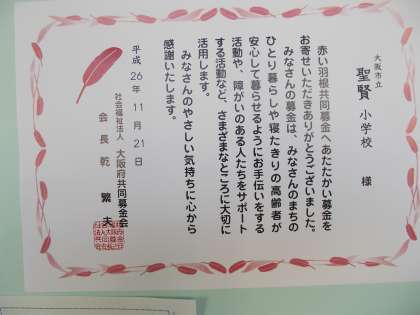 大阪市立
聖賢 小学校 様
赤い羽根共同募金へあたたかい募金を
お寄せいただきありがとうございました。
みなさんの募金は、みなさんのまちの
ひとり暮らしや寝たきりの高齢者が
安心して暮らせるようにお手伝いをする
活動や、障がいのある人たちをサポート
する活動など、さまざまなところに大切に
活用します。
みなさんのやさしい気持ちに心から
感謝いたします。
平成26年11月21日
社会福祉法人 大阪府共同募金会
会長 乾 繁夫